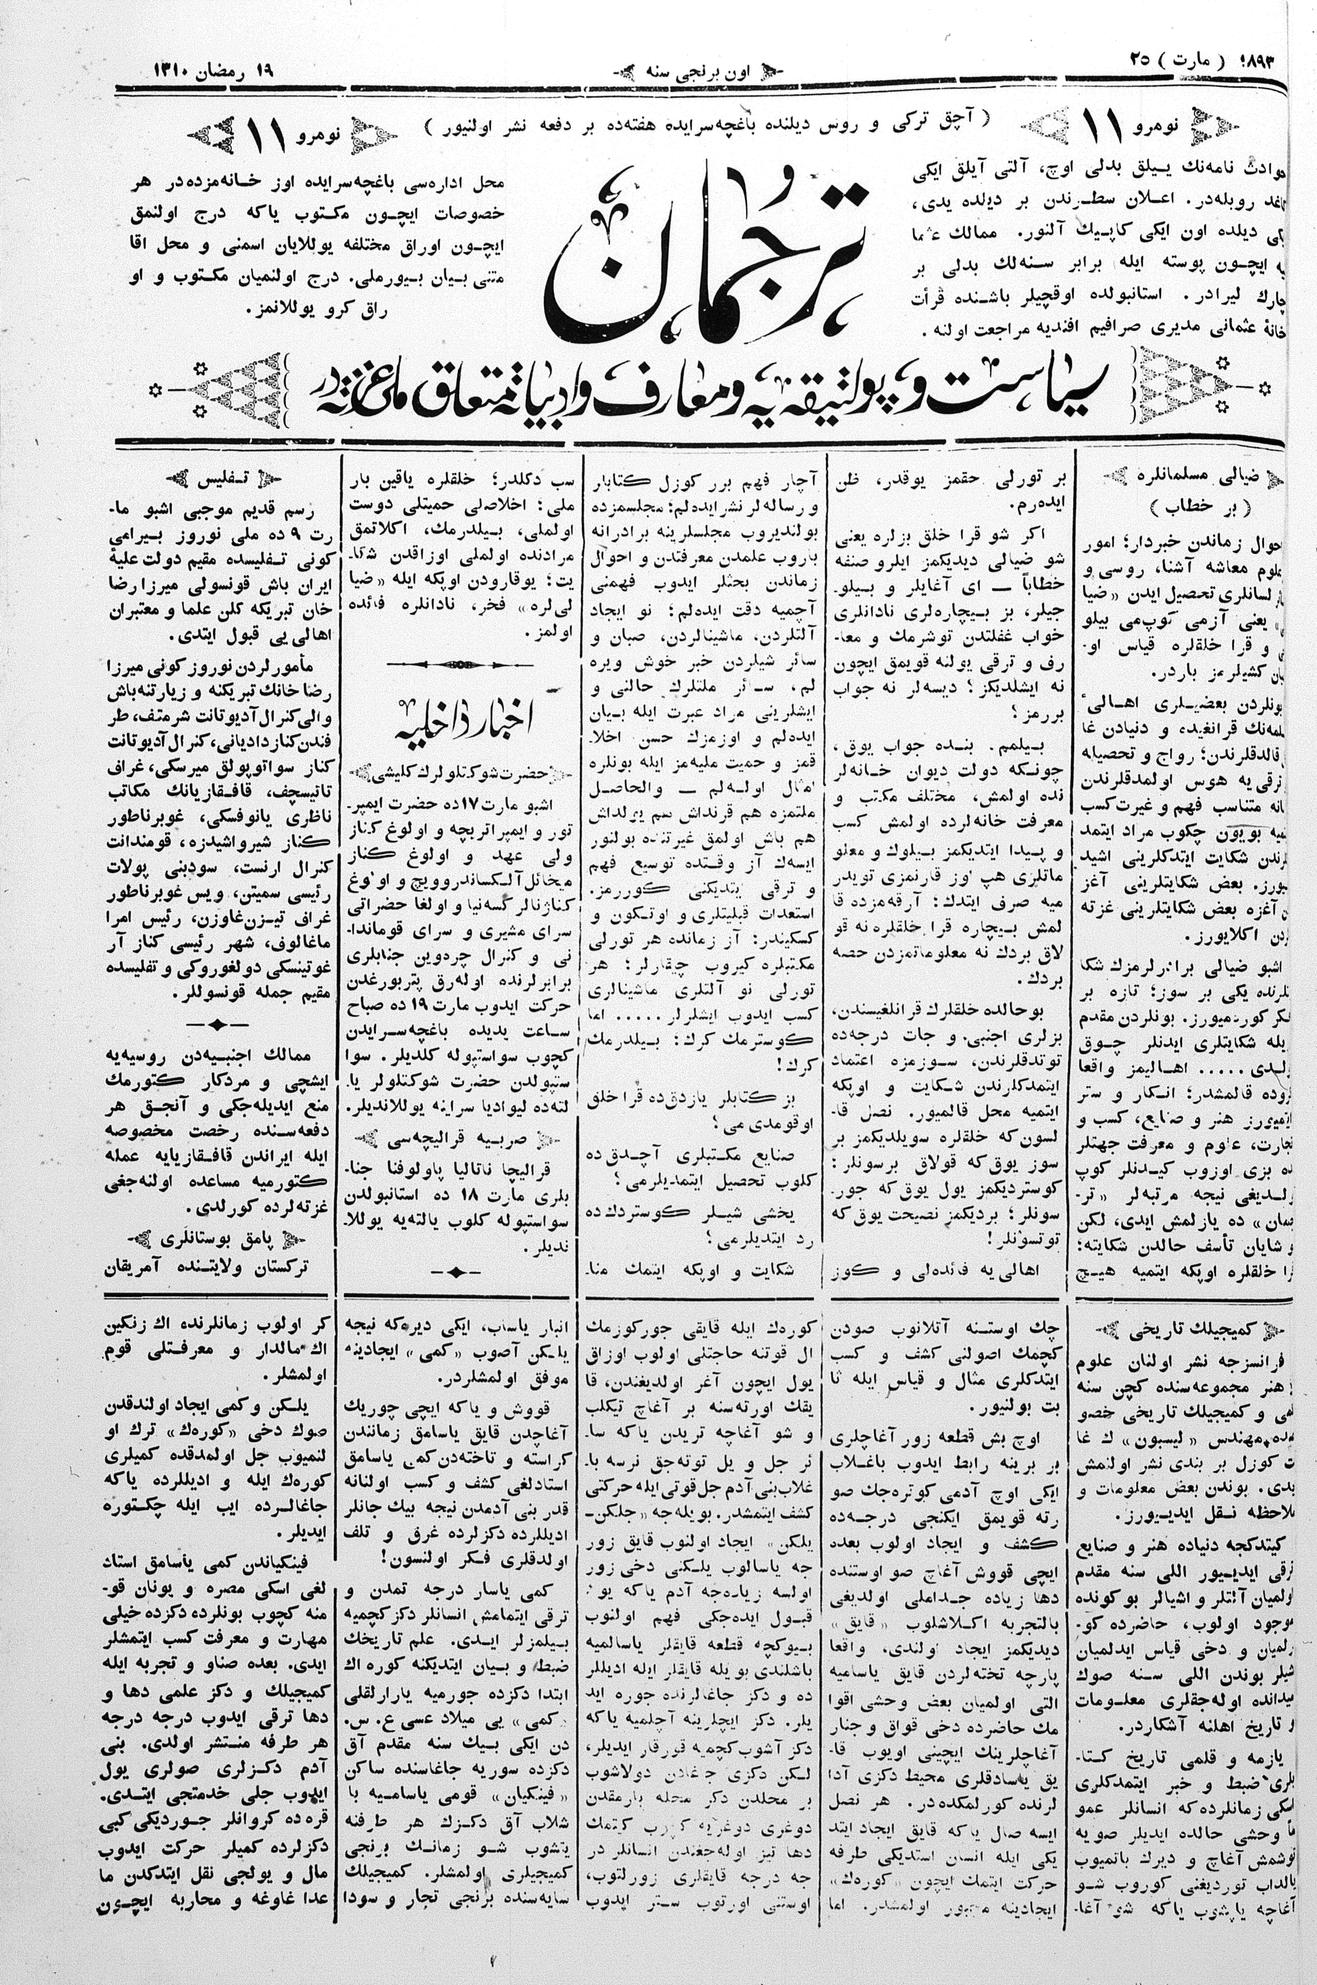 ١٨٩٣ ( مارت ) ٢٥
اون برنجی سنه
١٩ رمضان ١٣١٠
نومرو ١١
( آچق ترکی و روس دیلنده باغچه‌سرایده هفته‌ده بر دفعه نشر اولنیور )
نومرو ١١
حوادث نامه‌نك ییلق بدلی اوچ، آلتی آیلق ایکی
كاغد روبله‌در. اعلان سطرندن بر دیلده یدی،
ایکی دیلده اون ایکی کاپیك آلنور. ممالك عثما
نیه ایچون پوسته ایله برابر سنه‌لك بدلی بر
چارك لیرادر. استانبولده اوقچیلر باشنده قرأت
خانهٔ عثمانی مدیری صرافیم افندیه مراجعت اولنه.
ترجمان
محل اداره‌سی باغچه‌سرایده اوز خانه‌مزده‌در هر
خصوصات ایچون مکتوب یاکه درج اولنمق
ایچون اوراق مختلفه یوللایان اسمنی و محل اقا
متنی بیان بیورملی. درج اولنمیان مکتوب و او
راق کرو یوللانمز.
سیاست و پولتیقه‌یه و معارف و ادبیاته متعلق ملی غزته‌در
ضیالی مسلمانلره
( بر خطاب )
احوال زماندن خبردار؛ امور
علوم معاشه آشنا، روسی و
لسانلری تحصیل ایدن «ضیا
یعنی آزمی کوپ‌می بیلو
و قرا خلقلره قیاس او-
کشیلرمز باردر.
بونلردن بعضیلری اهالیٔ
قرانغیده و دنیادن غا
قالدقلرندن؛ رواج و تحصیله
ترقی یه هوس اولمدقلرندن
متناسب فهم و غیرت کسب
بویون چکوب مراد ایتمد
شکایت ایتدکلرینی اشید
بعض شکایتلرینی آغز
آغزه بعض شکایتلرینی غزته
اکلایورز.
اشبو ضیالی برادرلرمزك شکا
یتلرنده یکی بر سوز؛ تازه بر
فکر کورمیورز. بونلردن مقدم
بویله شکایتلری ایدنلر چوق
اولدی ..... اهالیمز واقعا
کروده قالمشدر؛ انکار و ستر
ایتمیورز هنر و صنایع، کسب و
تجارت، علوم و معرفت جهتلر
ده بزی اوزوب کیدنلر کوپ
اولدیغی نیجه مرتبه‌لر «تر-
جمان» ده یازلمش ایدی، لکن
شایان تأسف حالدن شکایته؛
قرا خلقلره اوپکه ایتمیه هیچ
بر تورلی حقمز یوقدر، ظن
ایده‌رم.
اکر شو قرا خلق بزلره یعنی
شو ضیالی دیدیکمز ایلرو صنفه
خطاباً — ای آغایلر و بیلو-
جیلر، بز بیچاره‌لری نادانلری
خواب غفلتدن توشرمك و معا-
رف و ترقی یولنه قویمق ایچون
نه ایشلدیکز؟ دیسه‌لر نه جواب
بررمز؟
بیلمم. بنده جواب یوق،
چونکه دولت دیوان خانه‌لر
نده اولمش، مختلف مکتب و
معرفت خانه‌لرده اولمش کسب
و پیدا ایتدیکمز بیلوك و معلو
ماتلری هپ اوز قارنمزی تویدر
میه صرف ایتدك؛ آرقه‌مزده قا
لمش بیچاره قرا خلقلره نه قو
لاق بردك نه معلوماتمزدن حصه
بردك.
بو حالده خلقلرك قرانلغیسندن،
بزلری اجنبی و جات درجه‌ده
توتدقلرندن، سوزمزه اعتماد
ایتمدکلرندن شکایت و اوپکه
ایتمیه محل قالمیور. نصل قا-
لسون که خلقلره سویلدیکمز بر
سوز یوق که قولاق برسونلر؛
کوستردیکمز یول یوق که جور-
سونلر؛ بردیکمز نصیحت یوق که
توتسونلر!
اهالی یه فائده‌لی و کوز
آچار فهم برر کوزل کتابلر
و رساله‌لر نشر ایده‌لم؛ مجلسمزده
بولندیروب مجلسلرینه برادرانه
باروب علمدن معرفتدن و احوال
زماندن بحثلر ایدوب فهمنی
آچمیه دقت ایده‌لم؛ نو ایجاد
آلتلردن، ماشینالردن، صبان و
سائر شیلردن خبر خوش ویره
لم، سائر ملتلرك حالنی و
ایشلرینی مراد عبرت ایله بیان
ایده‌لم و اوزمزك حسن اخلا-
قمز و حمیت ملیه‌مز ایله بونلره
مثال اوله‌لم — والحاصل
ملتمزه هم قرنداش هم یولداش
هم باش اولمق غیرتنده بولنور
ایسه‌ك آز وقتده توسیع فهم
و ترقی یتدیکنی کوررمز.
استعدات قبلیتلری و اوتکون و
کسکیندر: آز زمانده هر تورلی
مکتبلره کیروب چیقارلر؛ هر
تورلی نو آلتلری ماشینالری
کسب ایدوب ایشلرلر ..... اما
کوسترمك کرك؛ بیلدرمك
کرك!
بز کتابلر یازدق‌ده قرا خلق
اوقومدی می؟
صنایع مکتبلری آچدق ده
کلوب تحصیل ایتمدیلرمی؟
یخشی شیلر کوستردك ده
رد ایتدیلرمی؟
شکایت و اوپکه ایتمك منا-
سب دکلدر؛ خلقلره یاقین بار
ملی؛ اخلاصلی حمیتلی دوست
اولملی، بیلدرمك، اکلاتمق
مرادنده اولملی اوزاقدن شکا-
یت؛ یوقارودن اوپکه ایله «ضیا
لی‌لره» فخر، نادانلره فائده
اولمز.
اخبار داخلیه
حضرت شوکتلولرك کلیشی
اشبو مارت ١٧ده حضرت ایمپر-
تور و ایمپراتریچه و اولوغ کناز
ولی عهد و اولوغ کناز
میخائل آلکساندروویچ و اولوغ
کناژنالر کسه‌نیا و اولغا حضراتی
سرای مشیری و سرای قوماندا-
نی و کنرال چره‌وین جنابلری
برابرلرنده اوله‌رق پتربورغدن
حرکت ایدوب مارت ١٩ ده صباح
ساعت یدیده باغچه‌سرایدن
کچوب سواستپوله کلدیلر. سوا
ستپولدن حضرت شوکتلولر یا-
لته‌ده لیوادیا سراینه یوللاندیلر.
صربیه قرالیچه‌سی
قرالیچا ناتالیا پاولوفنا جنا-
بلری مارت ١٨ ده استانبولدن
سواستپوله کلوب یالته‌یه یوللا-
ندیلر.
تفلیس
رسم قدیم موجبی اشبو ما-
رت ٩ ده ملی نوروز بیرامی
کونی تفلیسده مقیم دولت علیهٔ
ایران باش قونسولی میرزا رضا
خان تبریکه کلن علما و معتبران
اهالی‌یی قبول ایتدی.
مأمورلردن نوروز کونی میرزا
رضا خانك تبریکنه و زیارتنه‌باش
والی‌کنرال آدیوتانت شرمتف، طر
فندن‌کناز دادیانی، کنرال آدیوتانت
کناز سواتوپولق میرسکی، غراف
تاتیسچف، قافقازیانك مکاتب
ناظری یانوفسکی، غوبرناطور
کناز شیرواشیدزه، قوماندانت
کنرال ارنست، سودبنی پولات
رئیسی سمیتن، ویس غوبرناطور
غراف تیزن‌غاوزن، رئیس امرا
ماغالوف، شهر رئیسی کناز آر
غوتینسکی دولغوروکی و تفلیسده
مقیم جمله قونسوللر.
ممالك اجنبیه‌دن روسیه‌یه
ایشچی و مردکار کتورمك
منع ایدیله‌جکی و آنجق هر
دفعه‌سنده رخصت مخصوصه
ایله ایراندن قافقازیایه عمله
کتورمیه مساعده اولنه‌جغی
غزته‌لرده کورلدی.
پامق بوستانلری
ترکستان ولایتنده آمریقان
کمیجیلك تاریخی
فرانسزجه نشر اولنان علوم
هنر مجموعه‌سنده کچن سنه
و کمیجیلك تاریخی خصو
مهندس «لیسبون» ك غا
کوزل بر بندی نشر اولنمش
ایدی. بوندن بعض معلومات و
ملاحظه نقل ایدیورز.
کیتدکجه دنیاده هنر و صنایع
ترقی ایدییور اللی سنه مقدم
اولمیان آلتلر و اشیالر بو کونده
موجود اولوب، حاضرده کو-
رلمیان و دخی قیاس ایدلمیان
شیلر بوندن اللی سنه صوك
میدانده اوله‌جقلری معلومات
و تاریخ اهلنه آشکاردر.
یازمه و قلمی تاریخ کتا-
بلری ضبط و خبر ایتمدکلری
اسکی زمانلرده که انسانلر عمو
ماً وحشی حالده ایدیلر صویه
توشمش آغاچ و دیرك باتمیوب
یالداب توردیغنی کوروب شو
آغاچه یاپشوب یاکه شو آغا-
چك اوستنه آتلانوب صودن
کچمك اصولنی کشف و کسب
ایتدکلری مثال و قیاس ایله ثا
بت بولنیور.
اوچ بش قطعه زور آغاچلری
بر برینه رابط ایدوب باغلاب
ایکی اوچ آدمی کوتره‌جك صو
رته قویمق ایکنجی درجه‌ده
کشف و ایجاد اولوب بعده
ایچی قووش آغاچ صو اوستنده
دها زیاده جداملی اولدیغی
بالتجربه اکلاشلوب «قایق»
دیدیکمز ایجاد اولندی. واقعا
پارچه تخته‌لردن قایق یاسامیه
التی اولمیان بعض وحشی اقوا
مك حاضرده دخی قواق و جنار
آغاچلرینك ایچینی اویوب قا-
یق یاسادقلری محیط دکزی آدا
لرنده کورلمکده‌در. هر نصل
ایسه صال یاکه قایق ایجاد ایتد
یکی ایله انسان استدیکی طرفه
حرکت ایتمك ایچون «کوره‌ك»
ایجادینه مجبور اولمشدر. اما
کوره‌ك ایله قایقی جورکوزمك
ال قوتنه حاجتلی اولوب اوزاق
یول ایچون آغر اولدیغندن، قا
یقك اورته‌سنه بر آغاچ تیکلب
و شو آغاچه تریدن یاکه سا-
ئر جل و یل توته‌جق نرسه با-
غلاب‌بنی آدم جل‌قوتی ایله حرکتی
کشف ایتمشدر. بویله‌جه «جلکن-
یلکن» ایجاد اولنوب قایق زور
جه یاسالوب یلکنی دخی زور
اولسه زیاده‌جه آدم یاکه یوك
قبول ایده‌جکی فهم اولنوب
بیوکچه قطعه قایقلر یاسالمیه
باشلندی بویله قایقلر ایله ادیللر
ده و دکز جاغالرنده جوره اید
یلر. دکز ایچلرینه آچلمیه یاکه
دکز آشوب کچمیه قورقار ایدیلر،
لکن دکزی جاغادن دولاشوب
بر محلدن دکر محله بارمقدن
دوغری دوغریه کچوب کیتمك
دها تیز اوله‌جغندن انسانلر در
جه درجه قایقلری زورلتوب،
اوستنی اورتوب ستر ایدوب
انبار یاساب، ایکی دیره‌که نیجه
یلکن آصوب «کمی» ایجادینه
موفق اولمشلردر.
قووش و یاکه ایچی چوریك
آغاچدن قایق یاسامق زماندن
کراسته و تاخته‌دن کمی یاسامق
استادلغی کشف و کسب اولنانه
قدر بنی آدمدن نیجه بیك جانلر
ادیللرده دکزلرده غرق و تلف
اولدقلری فکر اولنسون!
کمی یاسار درجه تمدن و
ترقی ایتمامش انسانلر دکزکچمیه
بیلمزلر ایدی. علم تاریخك
ضبط و بیان ایتدیکنه کوره اك
ابتدا دکزده جورمیه یارارلقلی
«کمی» یی میلاد عسی ع. س.
دن ایکی بیك سنه مقدم آق
دکزده سوریه جاغاسنده ساکن
«فینکیان» قومی یاسامیه با
شلاب آق دکزك هر طرفنه
یتشوب شو زمانك برنجی
کمیجیلری اولمشلر. کمیجیلك
سایه‌سنده برنجی تجار و سودا
کر اولوب زمانلرنده اك زنکین
اك مالدار و معرفتلی قوم
اولمشلر.
یلکن و کمی ایجاد اولندقدن
صوك دخی «کوره‌ك» ترك او
لنمیوب جل اولمدقده کمیلری
کوره‌ك ایله و ادیللرده یاکه
جاغالرده ایب ایله چکتوره
ایدیلر.
فینکیاندن کمی یاسامق استاد
لغی اسکی مصره و یونان قو-
منه کچوب بونلرده دکزده خیلی
مهارت و معرفت کسب ایتمشلر
ایدی. بعده صناو و تجربه ایله
کمیجیلك و دکز علمی دها و
دها ترقی ایدوب درجه درجه
هر طرفه منتشر اولدی. بنی
آدم دکزلری صولری یول
ایدوب جلی خدمتجی ایتدی.
قره ده کروانلر جوردیکی کبی
دکزلرده کمیلر حرکت ایدوب
مال و یولجی نقل ایتدکدن ما
عدا غاوغه و محاربه ایچون